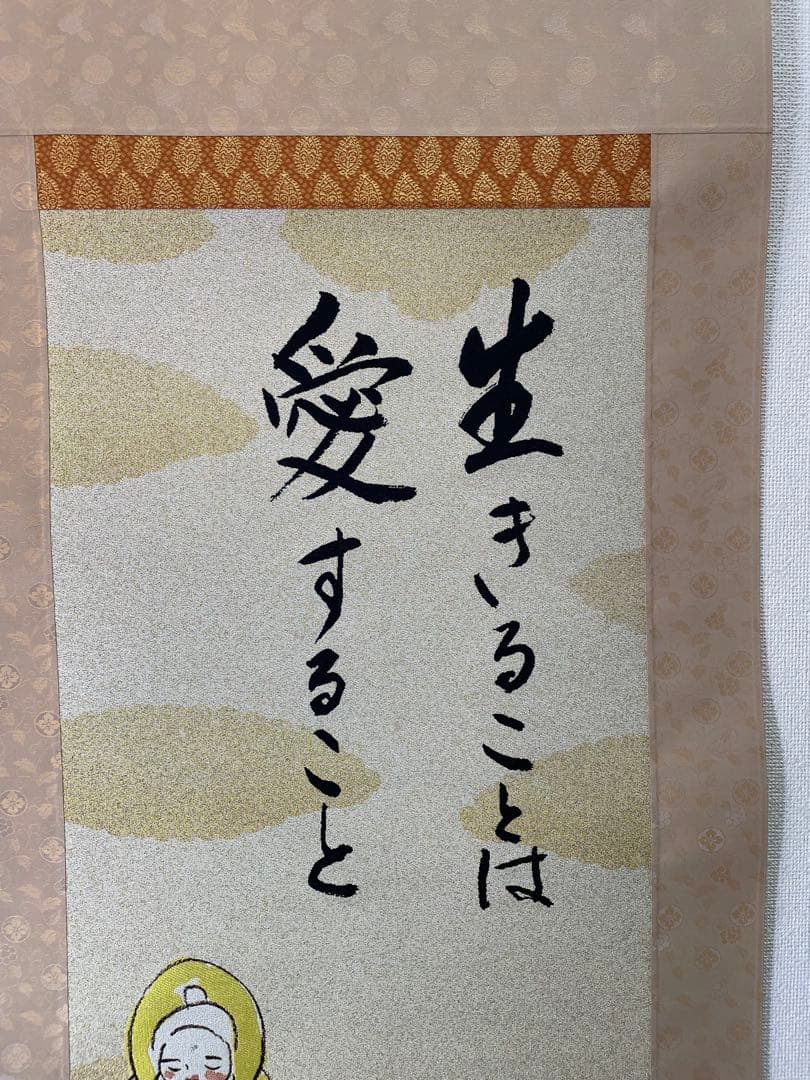 生きることは
愛すること